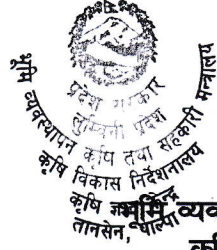 प्रदेश सरकार
लुम्बिनी प्रदेश
भूमि व्यवस्थापन कृषि तथा सहकारी मन्त्रालय
कृषि विकास निर्देशनालय
कृषि ज्ञान केन्द्र
तानसेन, पाल्पा
भूमि व्यव